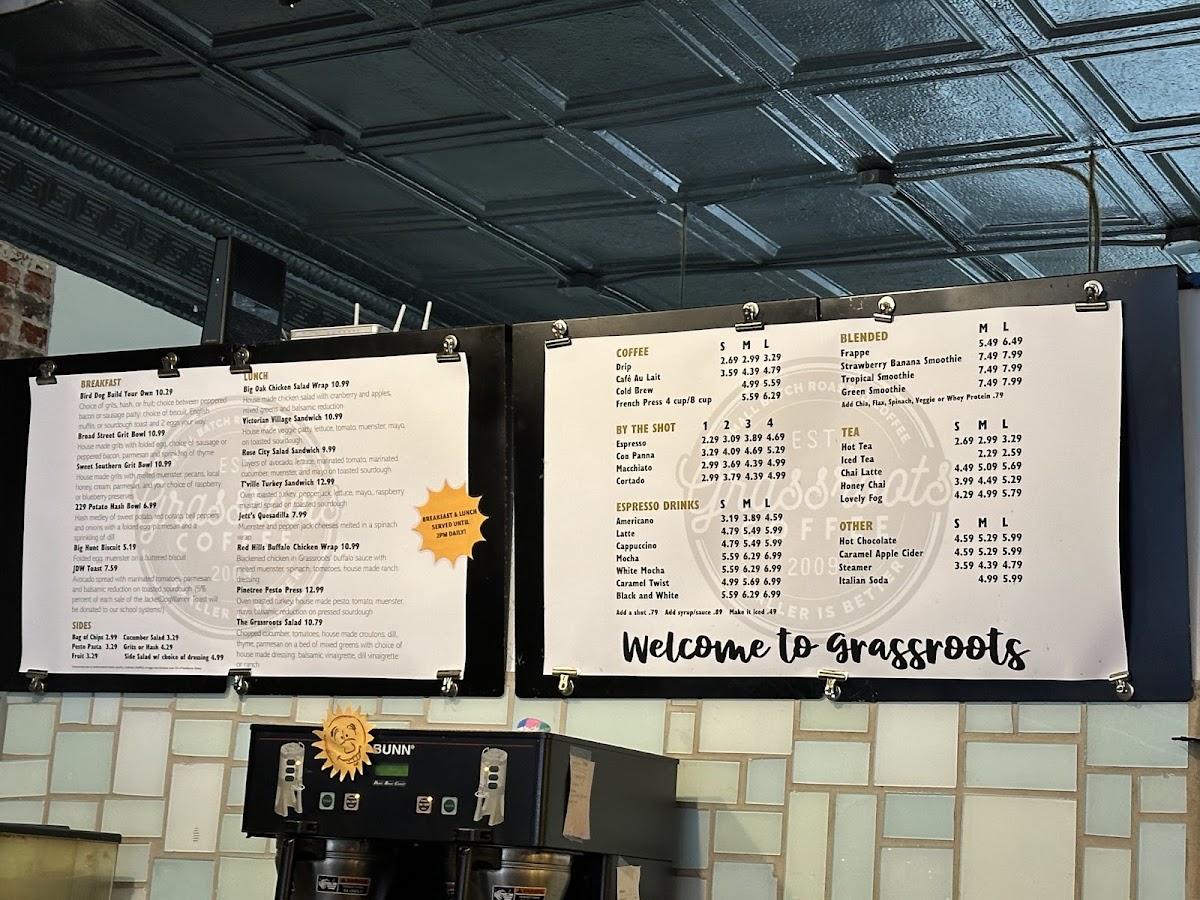 BREAKFAST
Bird Dog Build Your Own 10.29
Choice of grits, hash, or fruit; choice between peppered
bacon or sausage patty; choice of biscuit, English
muffin, or sourdough toast and 2 eggs your way
Broad Street Grit Bowl 10.99
House made grits with folded egg, choice of sausage or
peppered bacon, parmesan and sprinkling of thyme
Sweet Southern Grit Bowl 10.99
House made grits with melted munster, pecans, local
honey, cream, parmesan, and your choice of raspberry
or blueberry preserves
229 Potato Hash Bowl 6.99
Hash medley of sweet potato, red potato, bell peppers
and onions with a folded egg, parmesan and a
sprinkling of dill
Big Hunt Biscuit 5.19
Folded egg, muenster on a buttered biscuit
JDW Toast 7.59
Avocado spread with marinated tomatoes, parmesan,
and balsamic reduction on toasted sourdough (5%
percent of each sale of the JacketDogWarrior Toast will
be donated to our school systems!)
SIDES
Bag of Chips 2.99 Cucumber Salad 3.29
Pesto Pasta 3.29 Grits or Hash 4.29
Fruit 3.29 Side Salad w/ choice of dressing 4.99
LUNCH
Big Oak Chicken Salad Wrap 10.99
House made chicken salad with cranberry and apples,
mixed greens and balsamic reduction
Victorian Village Sandwich 10.99
House made veggie patty, lettuce, tomato, muenster, mayo,
on toasted sourdough
Rose City Salad Sandwich 9.99
Layers of avocado, lettuce, marinated tomato, marinated
cucumber, muenster, and mayo on toasted sourdough
T'ville Turkey Sandwich 12.99
Oven roasted turkey, pepperjack, lettuce, mayo, raspberry
mustard spread on toasted sourdough
Jett's Quesadilla 7.99
Muenster and pepper jack cheeses melted in a spinach
wrap
Red Hills Buffalo Chicken Wrap 10.99
Blackened chicken in Grassroots' buffalo sauce with
melted muenster, spinach, tomatoes, house made ranch
dressing
Pinetree Pesto Press 12.99
Oven roasted turkey, house made pesto, tomato, muenster,
mayo, balsamic reduction on pressed sourdough
The Grassroots Salad 10.79
Chopped cucumber, tomatoes, house made croutons, dill,
thyme, parmesan on a bed of mixed greens with choice of
house made dressing: balsamic, vinaigrette, dill vinaigrette
or ranch
BREAKFAST & LUNCH
SERVED UNTIL
2PM DAILY!
COFFEE S M L
Drip 2.69 2.99 3.29
Café Au Lait 3.59 4.39 4.79
Cold Brew 4.99 5.59
French Press 4 cup/8 cup 5.59 6.29
BY THE SHOT 1 2 3 4
Espresso 2.29 3.09 3.89 4.69
Con Panna 3.29 4.09 4.69 5.29
Macchiato 2.99 3.69 4.39 4.99
Cortado 2.99 3.79 4.39 4.99
ESPRESSO DRINKS S M L
Americano 3.19 3.89 4.59
Latte 4.79 5.49 5.99
Cappuccino 4.79 5.49 5.99
Mocha 5.59 6.29 6.99
White Mocha 5.59 6.29 6.99
Caramel Twist 4.99 5.69 6.99
Black and White 5.59 6.29 6.99
Add a shot .79 Add syrup/sauce .89 Make it iced .49
BLENDED M L
Frappe 5.49 6.49
Strawberry Banana Smoothie 7.49 7.99
Tropical Smoothie 7.49 7.99
Green Smoothie 7.49 7.99
Add Chia, Flax, Spinach, Veggie or Whey Protein .79
TEA S M L
Hot Tea 2.69 2.99 3.29
Iced Tea 2.29 2.59
Chai Latte 4.49 5.09 5.69
Honey Chai 3.99 4.49 5.29
Lovely Fog 4.29 4.99 5.79
OTHER S M L
Hot Chocolate 4.59 5.29 5.99
Caramel Apple Cider 4.59 5.29 5.99
Steamer 3.59 4.39 4.79
Italian Soda 4.99 5.99
Welcome to grassroots
EST.
Grassroots
COFFEE
2009
BUNN